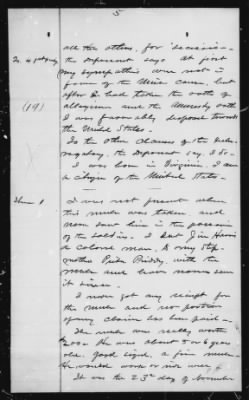 5
all the others, for decision -
the deponent says at first
my sympathies were not in
favor of the Union cause, but
after I had taken the oath of
allegiance and the Amnesty oath
I was favorably disposed towards
the United States.
(19)
To the other clauses of the Inter-
rogatory, the deponent says, I 
I was born in Virginia, I am
a citizen of the United States.
1
I was not present when
this mule was taken, and
never saw him in the possession
of the soldiers. I had
a colored man, & my step-
mother with the
mule and have never seen
it since.
I never got any receipt for
this mule and no portion
of my claim has been paid -
The mule was really worth
He was about 5 or 6 years
old. Good sized, a fine mule
He would work or ride
It was the 25th day of November